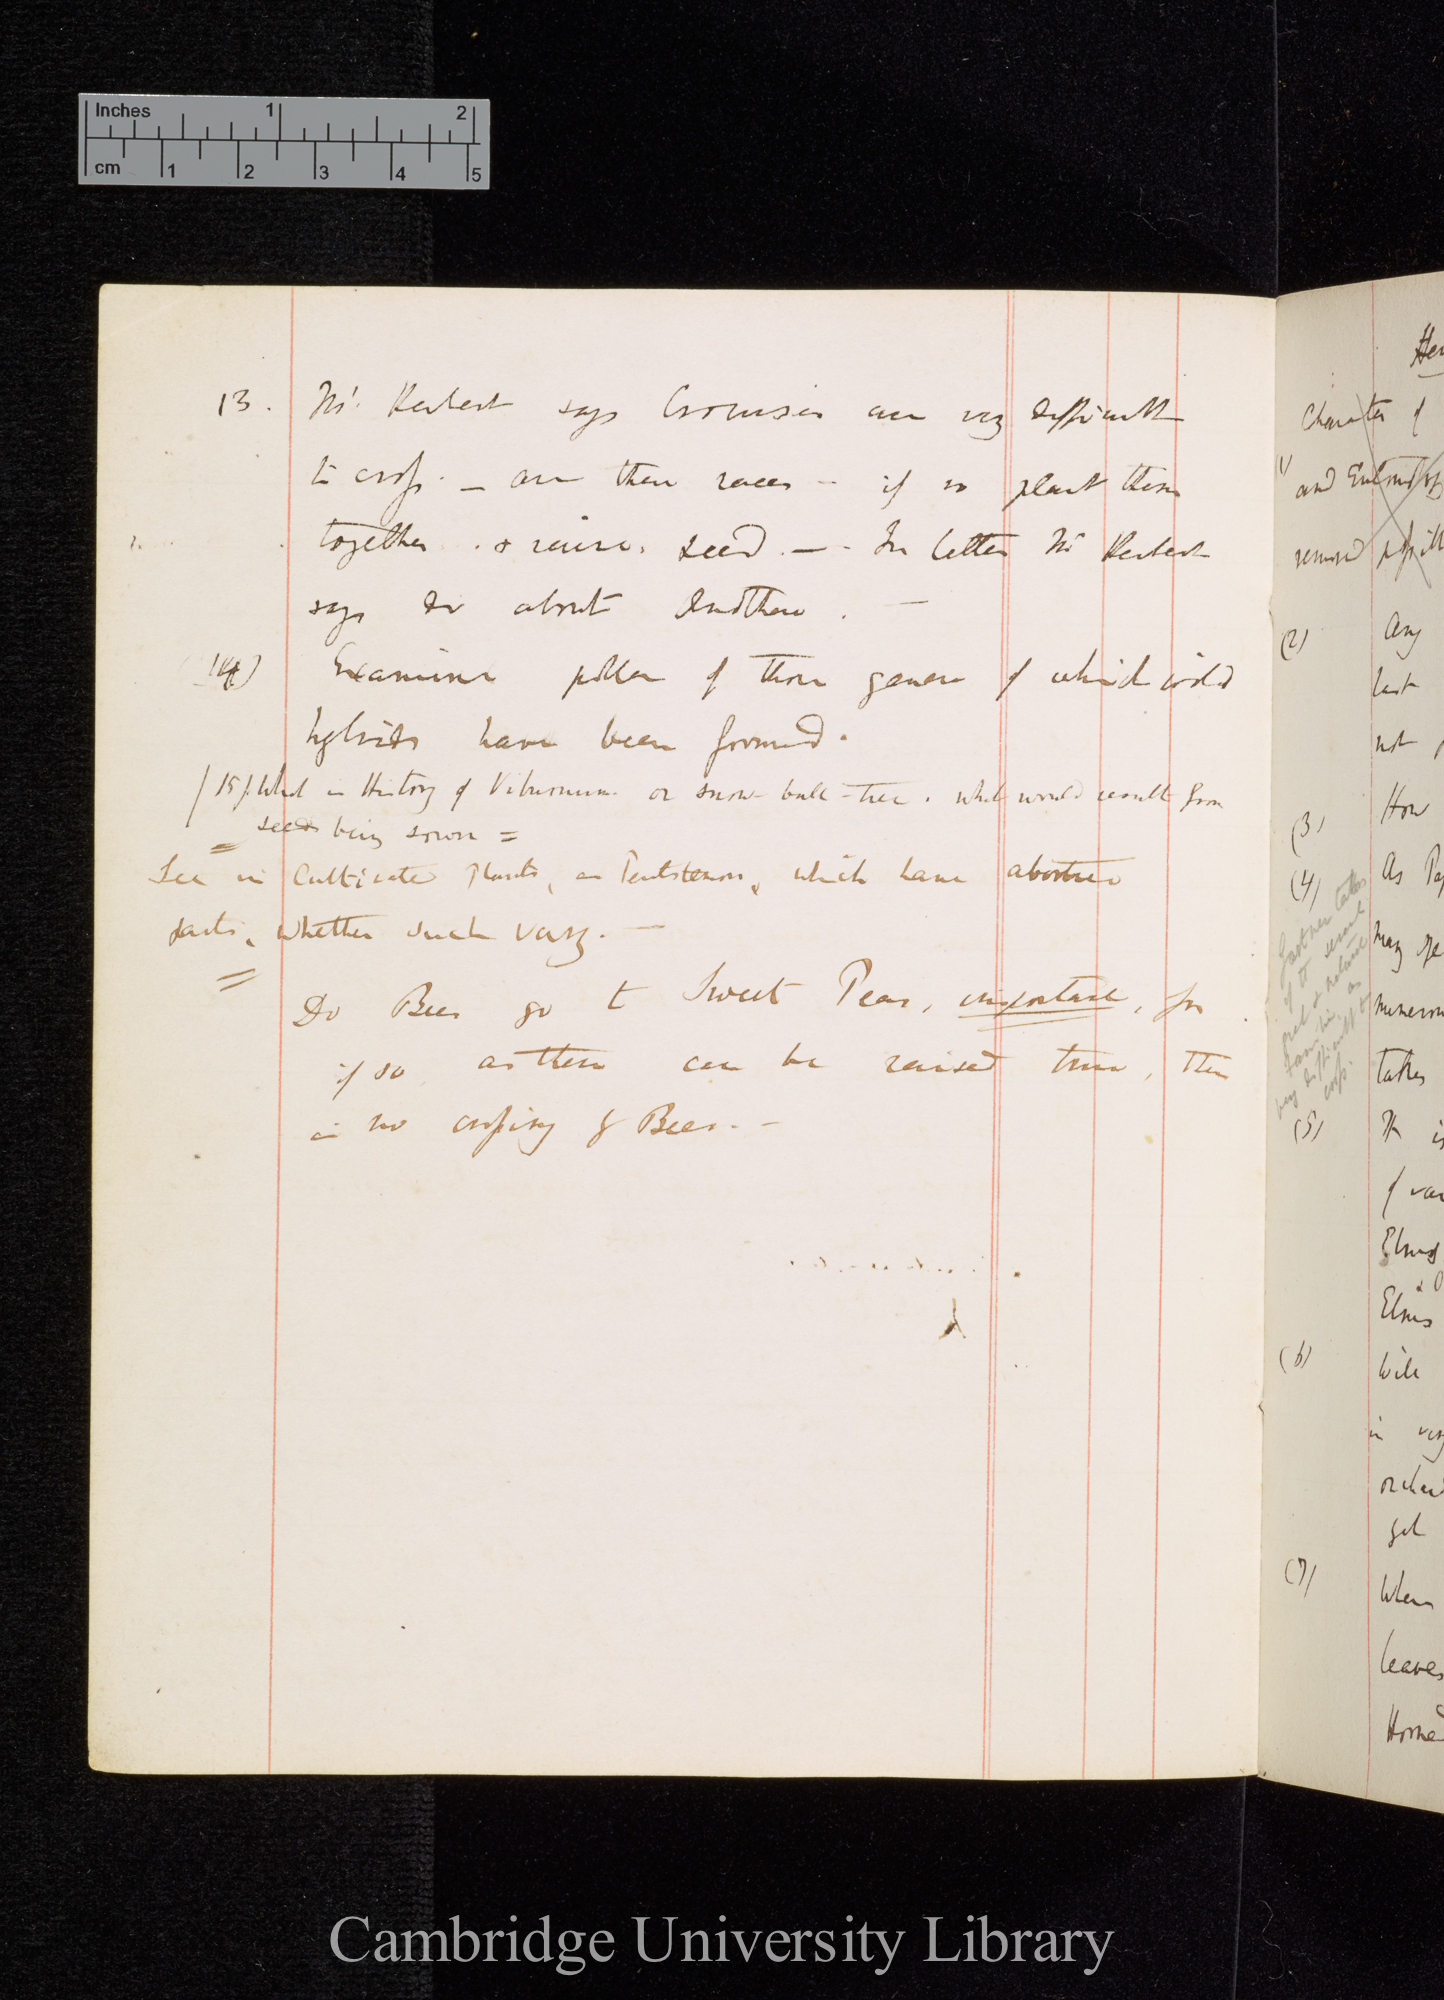 Inches 1 2
cm 1 2 3 4 5
13. Mr. Herbert says Crocuses are very difficult
to cross. — are there races — if so plant them
together & raise seed. — In letter Mr Herbert
says so about
(14) Examine pollen of those genera of which wild
hybrids have been formed.
(15) What is History of Viburnum or snow-ball-tree. what would result from
seeds being sown =
See in Cultivated Plants, as Pentstemon, which have abortive
parts, whether such vary. —
Do Bees go to Sweet Peas, important, for
if so as these can be raised true, there
is no crossing by Bees. —
Character of
and
removed
(2) Any
last
not
(3) How
(4) As
may
numerous
takes
(5) It is
of var
Elms
Elms
(6) Will
in very
orchard
get
(7) When
leaves
Horned
Cambridge University Library